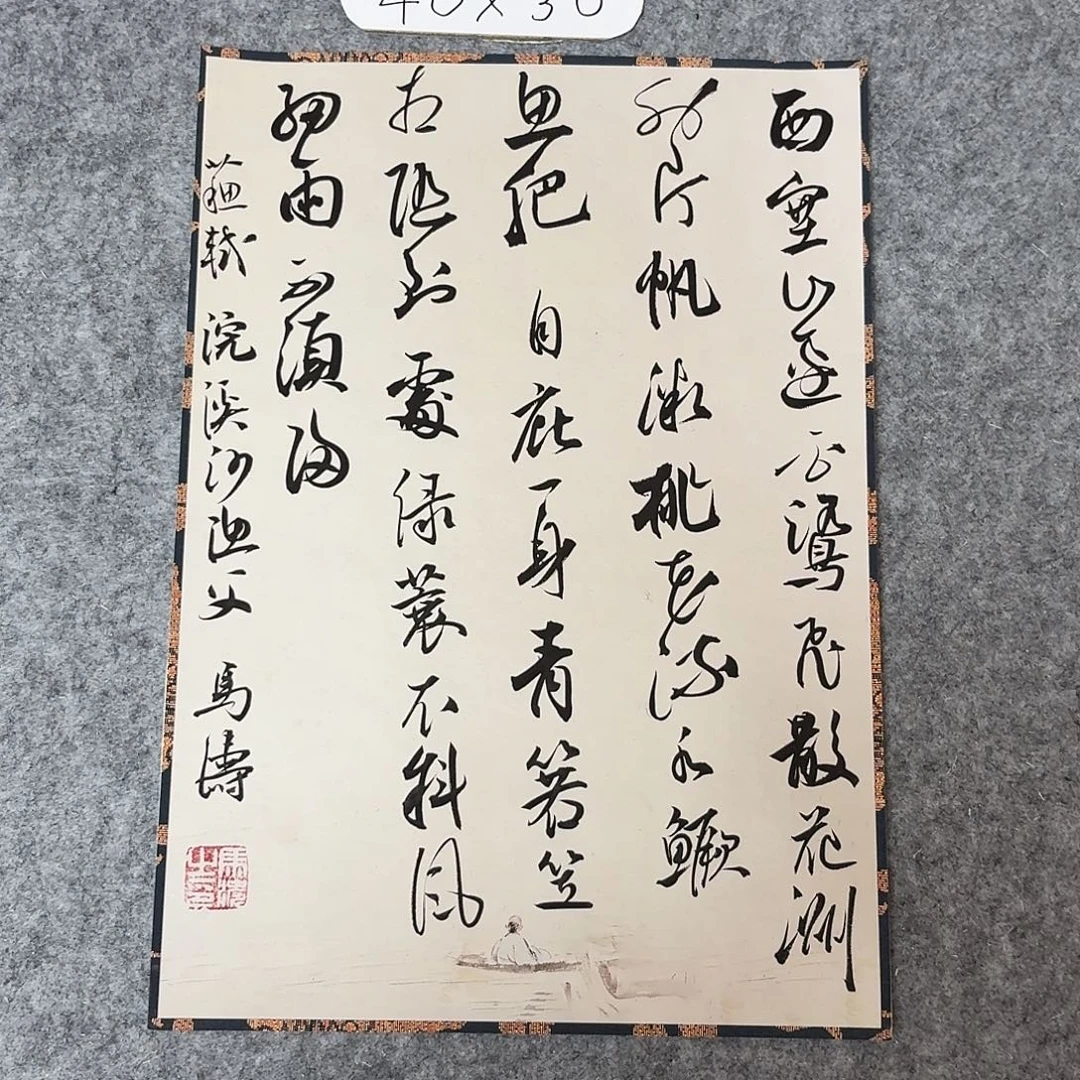 40×30
西塞山邊白鷺飛散花洲
外片帆微桃花流水鱖
魚肥 自庇一身青箬笠
相隨到處緑蓑衣斜風
細雨不須歸
蘇軾 浣溪沙漁父 馬濤